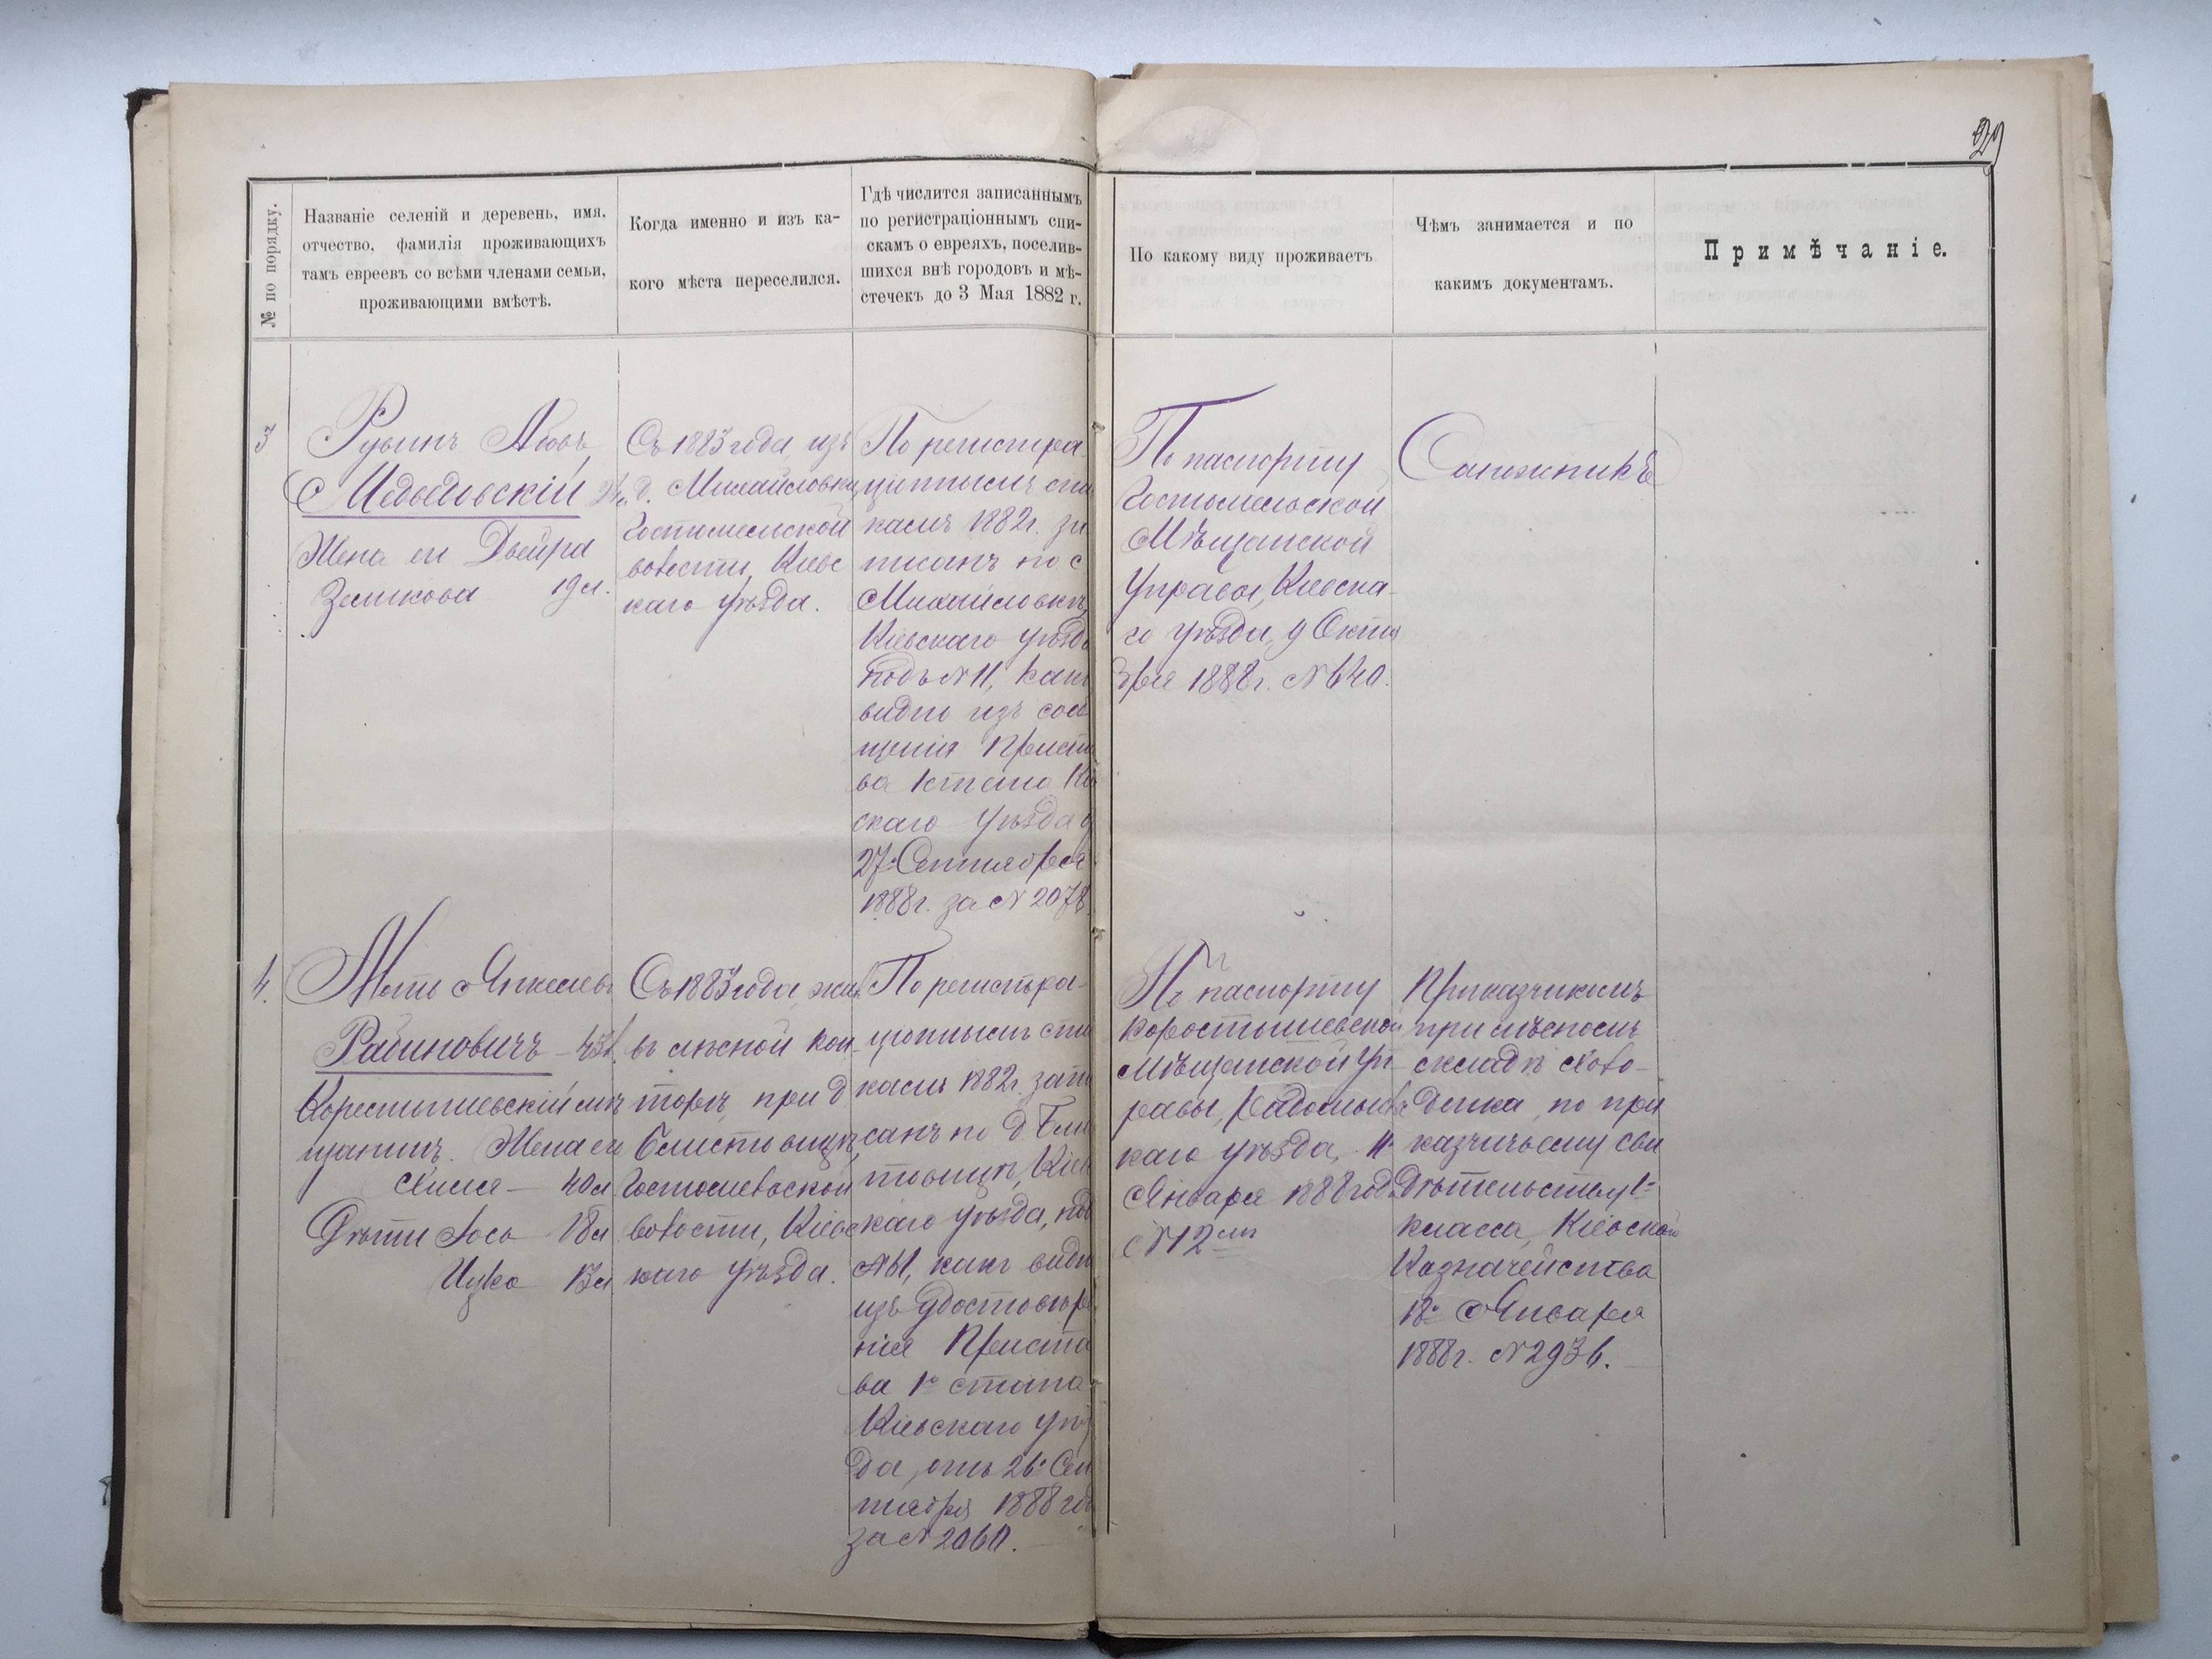 29
№ по порядку.
Названіе селеній и деревень, имя,
отчество, фамилія проживающихъ
тамъ евреевъ со всѣми членами семьи,
проживающими вмѣстѣ.
Когда именно и изъ ка-
кого мѣста переселился.
Гдѣ числится записаннымъ
по регистраціоннымъ спи-
скамъ о евреяхъ, поселив-
шихся внѣ городовъ и мѣ-
стечекъ до 3 Мая 1882 г.
По какому виду проживаетъ
Чѣмъ занимается и по
какимъ документамъ.
Примѣчаніе.
3
Рувинъ
Медведовскій
Жена ею Двейра
Зеликова 19 л.
Съ 1883 года, изъ
д. Михайловки
Гостомельской
волости, Кіевс
каго уѣзда.
По регистра
ціоннымъ спи
камъ 1882 г. за
писанъ по с
Михайловкѣ,
Кіевскаго уѣзда
подъ № 11, какъ
видно изъ сооб
щенія Приста
ва 1 стана Кіе
скаго уѣзда
27 Сентября
1888 г. за № 2078
По паспорту
Гостомельской
Мѣщанской
Управы, Кіевска-
го уѣзда, 9 Октя
бря 1888 г. № 640.
Сапожникъ
4.
Мото Янкелевъ
Рабиновичъ - 45 л.
Коростышевскій мѣ
щанинъ. Жена ею
40 л
Дѣти Іось 18 л
Ицко 13 л
Съ 1883 года, жив.
въ лѣсной кон
торѣ, при д
Блиставицѣ,
Гостомельской
волости, Кіевс
каго уѣзда.
По регистра-
ціоннымъ спи
камъ 1882 г. запи
санъ по д. Бли
товицѣ, Кіев
каго уѣзда, под
№ 61, какъ видн
изъ удостовѣре
нія Приста
ва 1го стана
Кіевскаго уѣз
да, отъ 26го Сен
тября 1888 год
за № 2060.
По паспорту
Коростышевской
Мѣщанской Уп
равы, Радомысль
каго уѣзда, 11
Января 1888 года
№ 12
Приказчикомъ
при лѣсномъ
складѣ Слобо-
денка, по при
казчичьему сви
дѣтельству 1го
класса, Кіевской
Казначейства
18го Января
1888 г. № 2936.